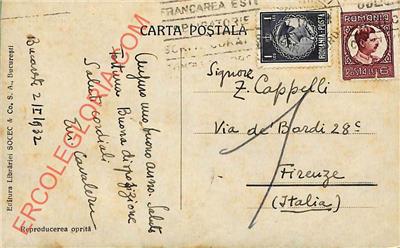 FRANCAREA ESTE
OBLIGATORIE
CARTA POSTALA
ROMANIA
POSTA
6
Bucarest 2/I/1932
Auguro una buono anno. Salute
Fortuna Buona disposizione
Saluti cordiali
Signore
Z. Cappelli
Via de Bardi 28c
Firenze
(Italia)
Editura Librăriei SOCEC & Co. S. A., București
Reproducerea oprită
ERCOLEGLORIA.COM